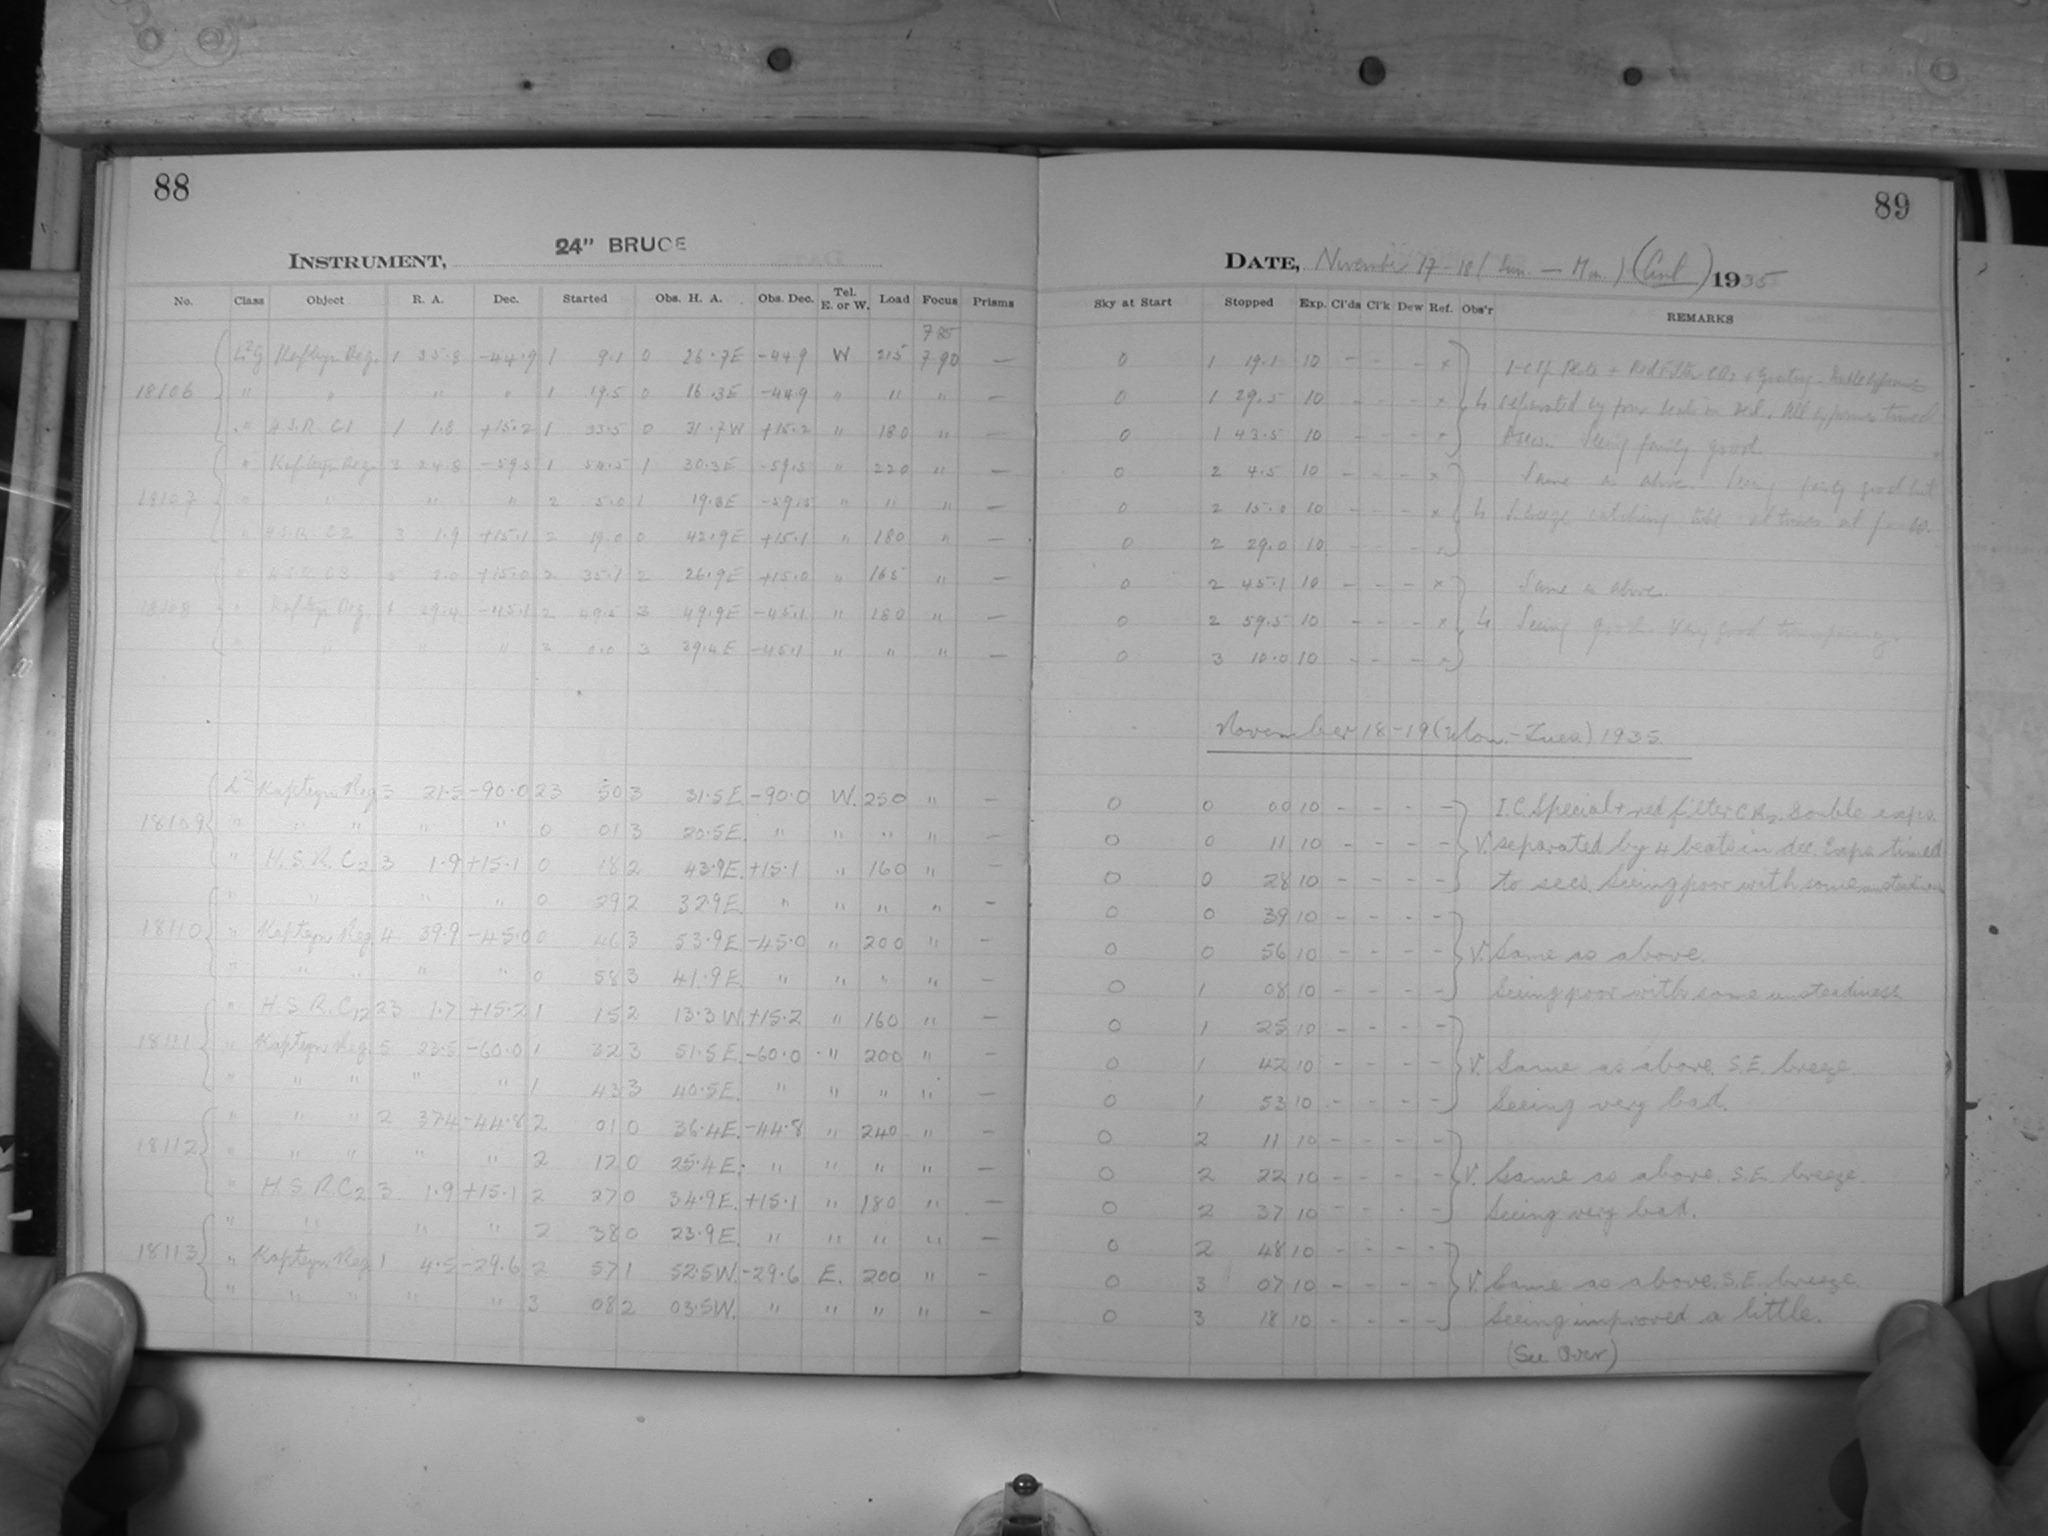 88
INSTRUMENT, 24" BRUCE
No. Class Object R. A. Dec. Started Obs. H. A. Obs. Dec. Tel. E. or W. Load Focus Prisms
785
Kapteyn Reg. 1 35.8 -44.9 1 9.1 0 26.7E -44.9 W 215 7.90 —
18106 " " " " 1 19.5 0 16.3E -44.9 " " " —
" H.S.R. C1 1 1.8 +15.2 1 33.5 0 31.7W +15.2 " 180 " —
" Kapteyn Reg. 3 24.8 -59.5 1 54.5 1 30.3E -59.5 " 220 " —
18107 " " " " 2 5.0 1 19.8E -59.5 " " " —
" H.S.R. C2 3 1.9 +15.1 2 19.0 0 42.9E +15.1 " 180 " —
" H.S.R. C3 5 2.0 +15.0 2 35.1 2 26.9E +15.0 " 165 " —
18108 " Kapteyn Reg. 29.4 -45.1 2 49.5 3 49.9E -45.1 " 180 " —
" " " " 3 0.0 3 39.4E -45.1 " " " —
Kapteyn Reg. 5 21.5 -90.0 23 50 3 31.5E -90.0 W. 250 " —
18109 " " " " " 0 01 3 20.5E. " " " " —
" H.S.R. C2 3 1.9 +15.1 0 18 2 43.9E. +15.1 " 160 " —
" " " " 0 29 2 32.9E. " " " " —
18110 " Kapteyn Reg. 4 39.9 -45.0 0 46 3 53.9E -45.0 " 200 " —
" " " " " 0 58 3 41.9E. " " " " —
" H.S.R. C12 23 1.7 +15.2 1 15 2 13.3W +15.2 " 160 " —
18111 " Kapteyn Reg. 5 23.5 -60.0 1 32 3 51.5E. -60.0 " 200 " —
" " " " " 1 43 3 40.5E. " " " " —
" " " 2 37.4 -44.8 2 01 0 36.4E. -44.8 " 240 " —
18112 " " " " " 2 12 0 25.4E. " " " " —
" H.S.R.C2 3 1.9 +15.1 2 27 0 34.9E. +15.1 " 180 " —
" " " " 2 38 0 23.9E. " " " " —
18113 " Kapteyn Reg. 1 4.5 -29.6 2 57 1 52.5W. -29.6 E. 200 " —
" " " " " 3 08 2 03.5W. " " " " —
89
DATE, November 17-18 (Sun. — Mon.) 1935
Sky at Start Stopped Exp. Cl'ds Cl'k Dew Ref. Obs'r REMARKS
0 1 19.1 10 - - - x
0 1 29.5 10 - - - x separated by four beats in dec. All exposures timed
0 1 43.5 10 - - - x Seeing fairly good.
0 2 4.5 10 - - - x Same as above. Seeing fairly good but
0 2 15.0 10 - - - x breeze catching tube at times
0 2 29.0 10 - - - x
0 2 45.1 10 - - - x Same as above.
0 2 59.5 10 - - - x Seeing good. Very good transparency.
0 3 10.0 10 - - - x
November 18-19 (Mon.-Tues.) 1935.
0 0 00 10 - - - - I.C. Special + red filter CR2. Double exps.
0 0 11 10 - - - - V. separated by 4 beats in dec. Exps. timed
0 0 28 10 - - - - to secs. Seeing poor with some unsteadiness
0 0 39 10 - - - -
0 0 56 10 - - - - V. Same as above.
0 1 08 10 - - - - Seeing poor with some unsteadiness
0 1 25 10 - - - -
0 1 42 10 - - - - V. Same as above. S.E. breeze.
0 1 53 10 - - - - Seeing very bad.
0 2 11 10 - - - -
0 2 22 10 - - - - V. Same as above. S.E. breeze.
0 2 37 10 - - - - Seeing very bad.
0 2 48 10 - - - -
0 3 07 10 - - - - V. Same as above. S.E. breeze.
0 3 18 10 - - - - Seeing improved a little.
(See Over)